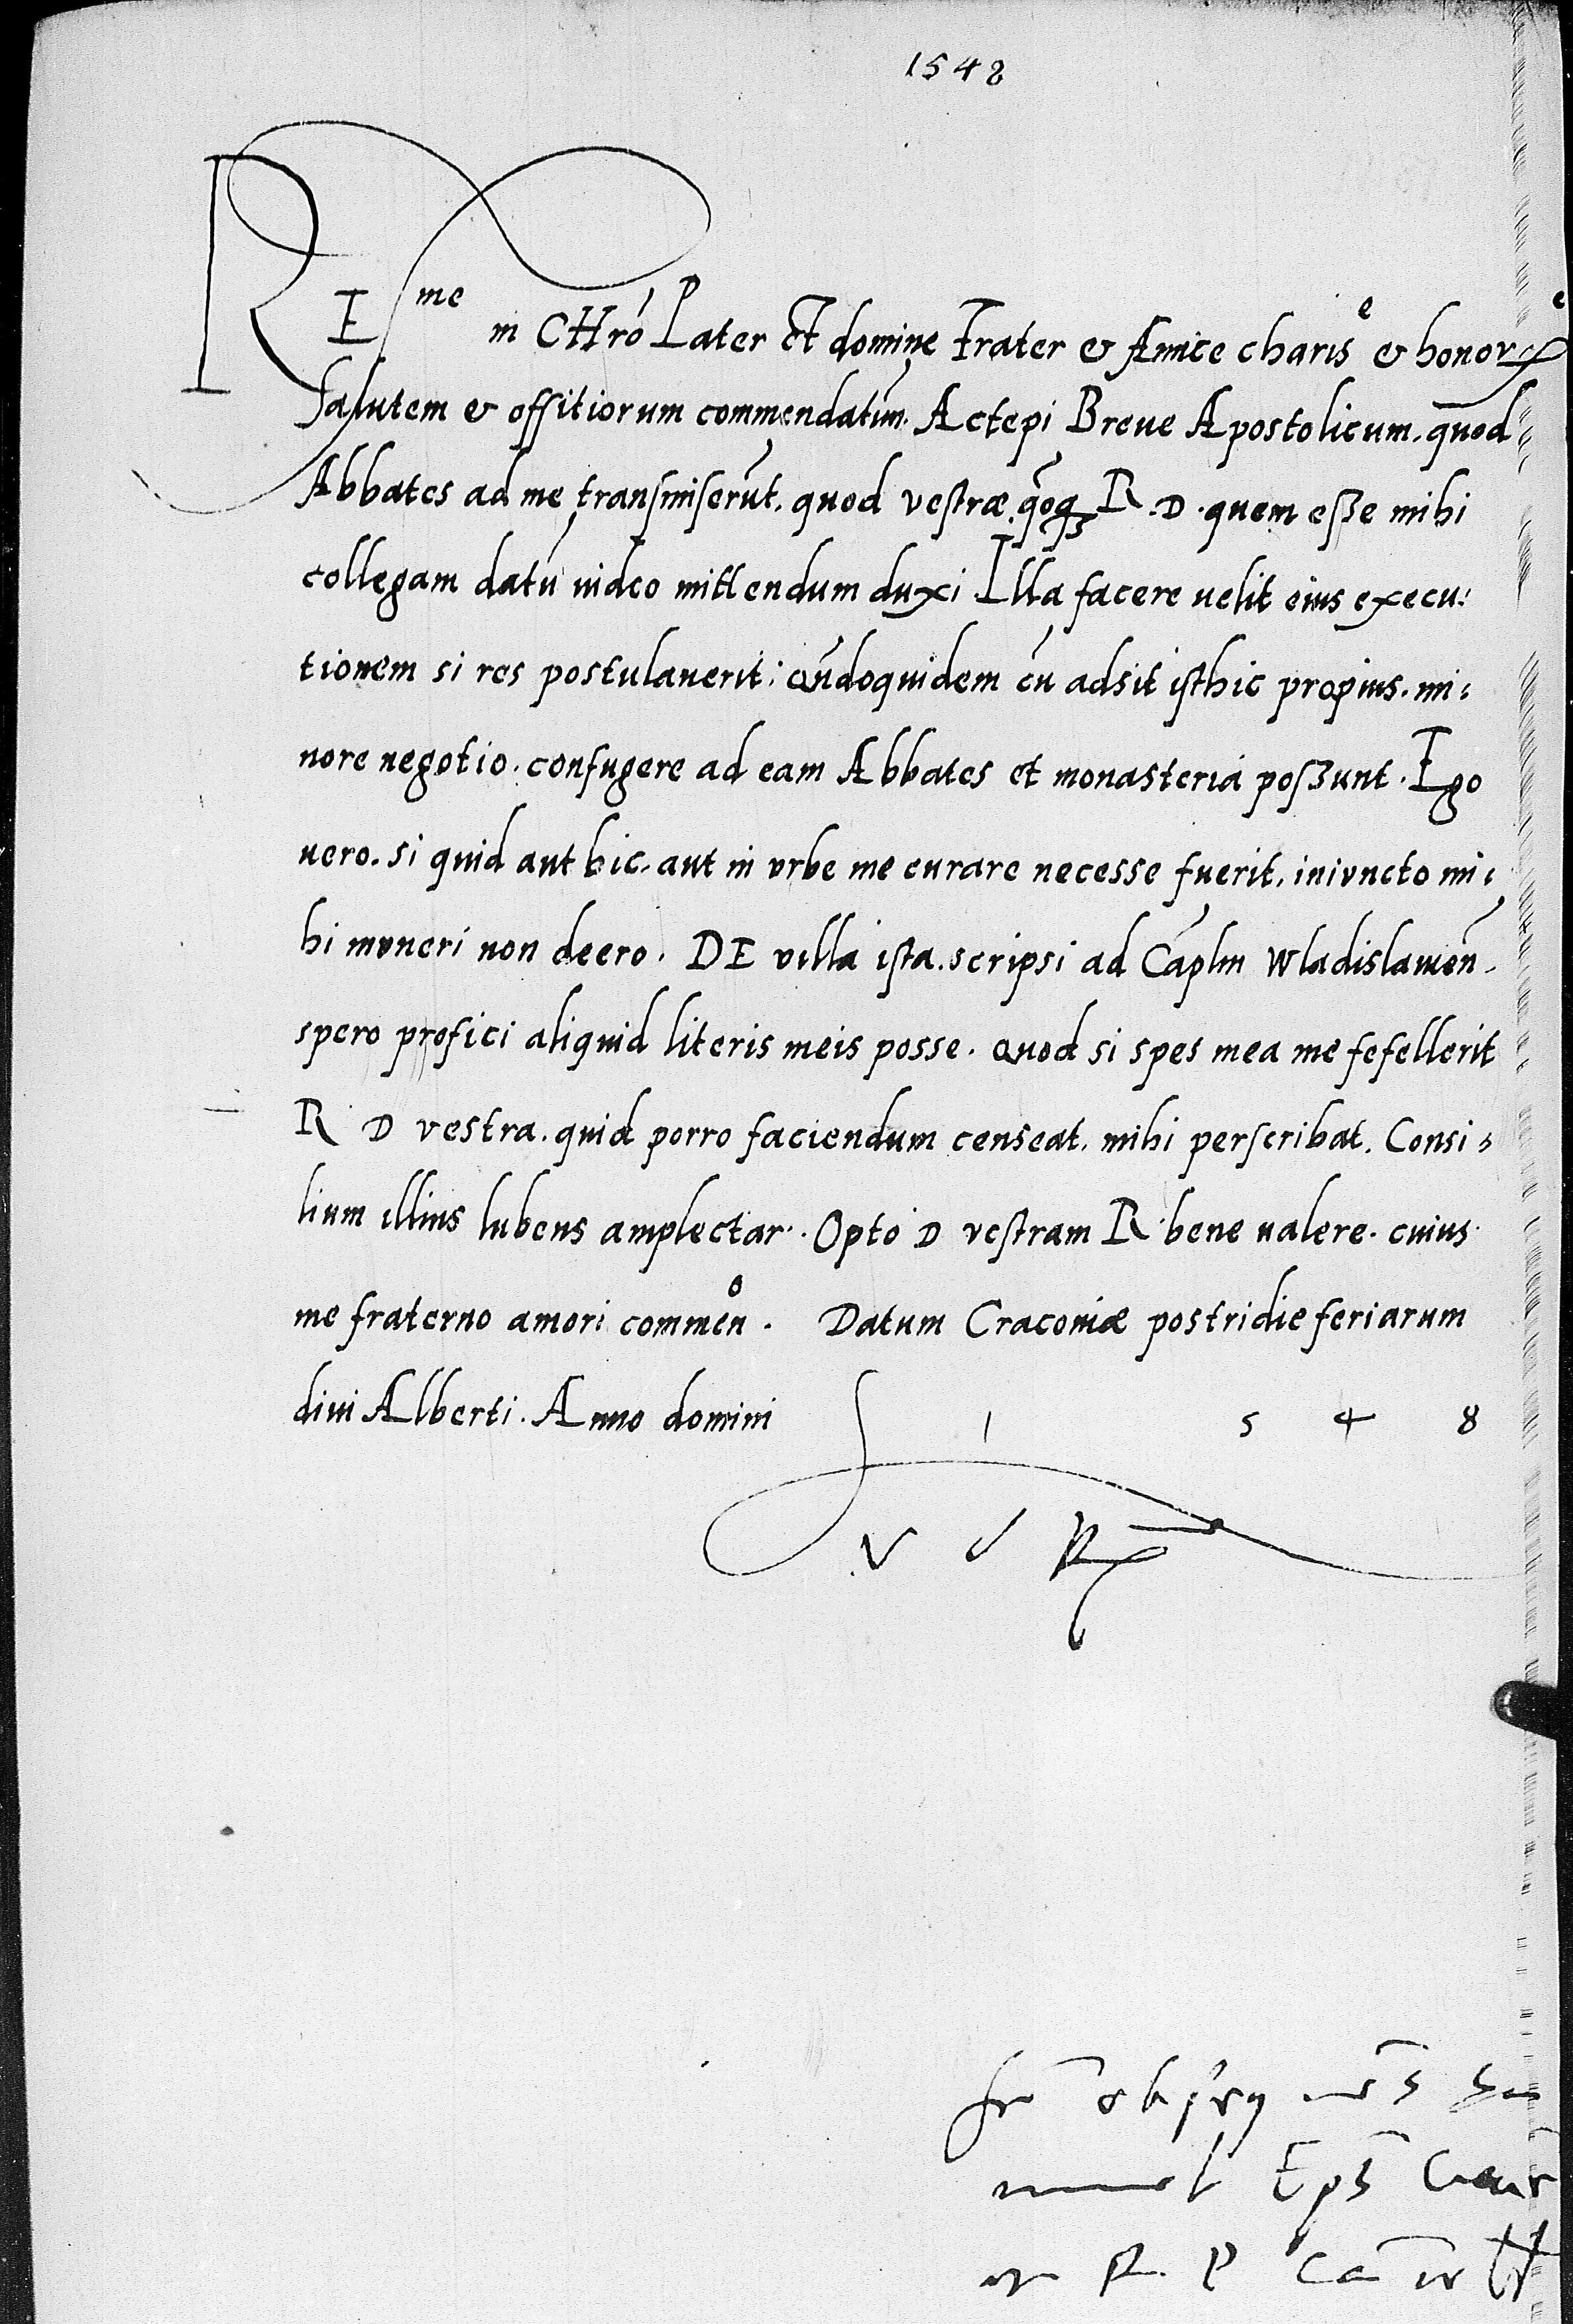 1548
REme in CHrō Pater et domine Frater & Amice charise & honorae
Salutem & offitiorum commendatum. Accepi Breue Apostolicum, quod
Abbates ad me transmiserūt, quod vestræ qōqȝ R. D. quem esse mihi
collegam datū uideo mittendum duxi. Illa facere uelit eius execu:
tionem si res postulauerit: qūdoquidem cū adsit isthic propius. mi:
nore negotio. confugere ad eam Abbates et monasteria possunt. Ego
uero. si quid aut hic. aut in vrbe me curare necesse fuerit, iniuncto mi:
hi muneri non deero. DE villa ista. scripsi ad Caplm Wladislauieñ.
spero profici aliquid literis meis posse. Quod si spes mea me fefellerit
R D vestra. quid porro faciendum censeat. mihi perscribat. Consi:
lium illius lubens amplectar. Opto D vestram R bene ualere. cuius
me fraterno amori commeño. Datum Cracouiæ postridie feriarum
diui Alberti. Anno domini 1 5 4 8
V D R
Eps Crac
R. P Ca